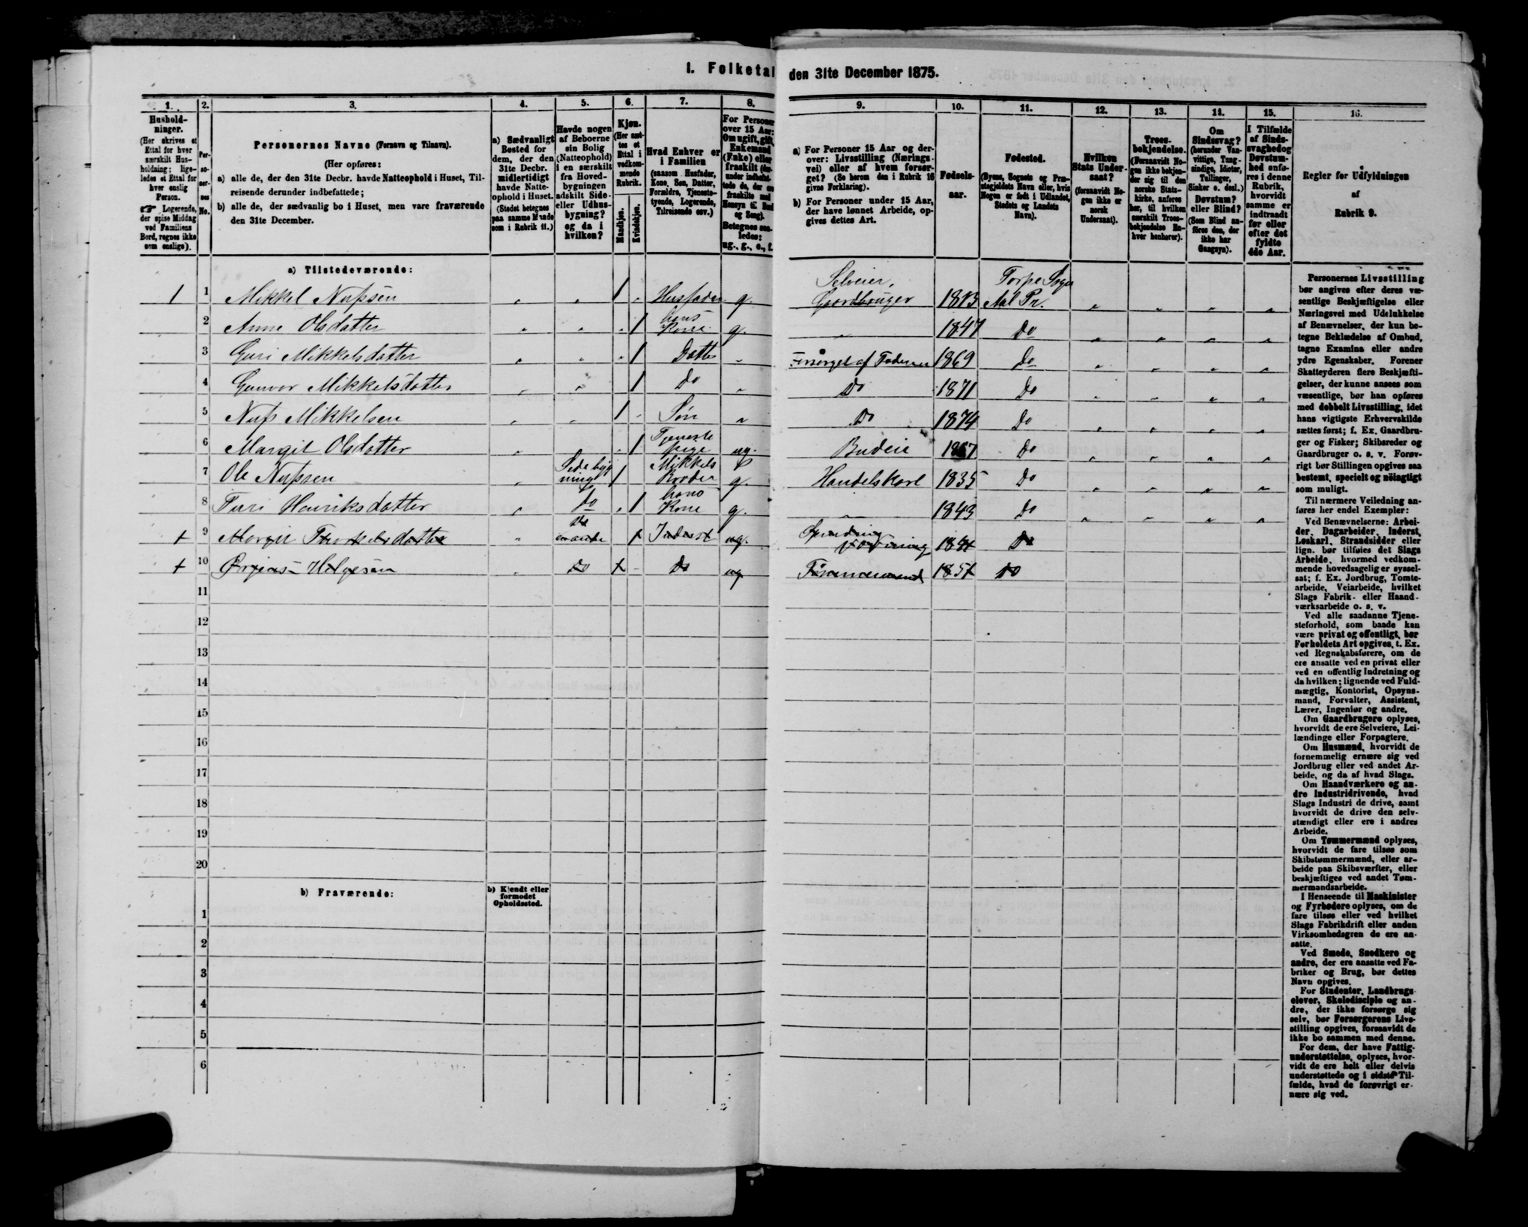 I. Folketal den 31te December 1875.
1. 2. 3. 4. 5. 6. 7. 8. 9. 10. 11. 12. 13. 14. 15. 16.
Hushold-
ninger.
(Her skrives et
Ettal for hver
særskilt Hus-
holdning; lige-
ledes et Ettal for
hver enslig
Person.
Logerende,
der spise Middag
ved Familiens
Bord, regnes ikke
som enslige).
Personernes Navne (Fornavn og Tilnavn).
(Her opføres:
a) alle de, der den 31te Decbr. havde Natteophold i Huset, Til-
reisende derunder indbefattede;
b) alle de, der sædvanlig bo i Huset, men vare fraværende
den 31te December.
a) Sædvanligt
Bosted for
dem, der den
31te Decbr.
midlertidigt
havde Natte-
ophold i Huset.
(Stedet betegnes
paa samme Maade
som i Rubrik 11.)
Havde nogen
af Beboerne
sin Bolig
(Natteophold)
i en særskilt
fra Hoved-
bygningen
adskilt Side-
eller Udhus-
bygning?
og da i
hvilken?
Kjøn.
(Her sæt-
tes et
Ettal i
vedkom-
mende
Rubrik.
Mandkjøn.
Kvindekjøn.
Hvad Enhver er
i Familien
(saasom Husfader,
Kone, Søn, Datter,
Forældre, Tjeneste-
tyende, Logerende,
Tilreisende osv.)
For Personer
over 15 Aar:
Om ugift, gift,
Enkemand
(Enke) eller
fraskilt
Betegnes saa-
ledes:
ug., g., e., f.
a) For Personer 15 Aar og der-
over: Livsstilling (Nærings-
vei) eller af hvem forsør-
get? (Se herom den i Rubrik 16
givne Forklaring).
b) For Personer under 15 Aar,
der have lønnet Arbeide, op-
gives dettes Art.
Fødsels-
aar.
Fødested.
(Byens, Sognets og Præ-
stegjeldets Navn eller, hvis
Nogen er født i Udlandet,
Stedets og Landets
Navn).
Hvilken
Stats Under-
saat?
(forsaavidt No-
gen ikke er
norsk
Undersaat).
Troes-
bekjendelse.
(Forsaavidt No-
gen ikke bekjen-
der sig til den
norske Stats-
kirke, anføres
her, til hvilken
særskilt Troes-
bekjendelse En-
hver henhører).
Om
Sindssvag?
(herunder Van-
vittige, Tung-
sindige, Idioter,
Tullinger,
Sinker o. desl.)
Døvstum?
eller Blind?
(Som Blind an-
føres den, der
ikke har
Gangsyn).
I Tilfælde
af Sinds-
svaghed og
Døvstum-
hed anfø-
res i denne
Rubrik,
hvorvidt
samme er
indtraadt
før eller
efter det
fyldte
4de Aar.
Regler for Udfyldningen
af
Rubrik 9.
a) Tilstedeværende:
1 1 Mikkel Nilssen 1 Husfader g. Selveier, Gaardbruger 1843 Torpe Sogn Aal Pr.
2 Anne Olsdatter 1 hans Kone g. 1847 Do
3 Guri Mikkelsdatter 1 Datter Forsørget af Faderen 1869 Do
4 Gunvor Mikkelsdatter 1 Do Do 1871 Do
5 Nils Mikkelsen 1 Søn Do 1874 Do
6 Margit Olsdatter 1 Tjeneste Pige ug. Budeie 1857 Do
7 Ole Nilssen Sidebygning 1 Mikkels Broder g. Handelskarl 1835 Do
8 Turi Henriksdatter Do 1 hans Kone g. 1843 Do
9 Margit Thorkelsdatter Do 1 Inderst ug. Spinding 18 Do
10 Helgesen Do Do ug 185 Do
11
12
13
14
15
16
17
18
19
20
b) Fraværende:
b) Kjendt eller
formodet
Opholdssted.
1
2
3
4
5
6
Personernes Livsstilling
bør angives efter deres væ-
sentlige Beskjæftigelse eller
Næringsvei med Udelukkelse
af Benævnelser, der kun be-
tegne Beklædelse af Ombud,
tagne Examina eller andre
ydre Egenskaber. Forener
Skatteyderen flere Beskjæfti-
gelser, der kunne ansees som
væsentlige, bør han opføres
med dobbelt Livsstilling, idet
hans vigtigste Erhvervskilde
sættes først; f. Ex. Gaardbru-
ger og Fisker; Skibsreder og
Gaardbruger o. s. v. Forøv-
rigt bør Stillingen opgives saa
bestemt, specielt og nøiagtigt
som muligt.
Til nærmere Veiledning an-
føres her endel Exempler:
Ved Benævnelserne: Arbei-
der, Dagarbeider, Inderst,
Løskarl, Strandsidder eller
lign. bør tilføies det Slags
Arbeide, hvormed vedkom-
mende hovedsagelig er syssel-
sat; f. Ex. Jordbrug, Tomte-
arbeide, Veiarbeide, hvilket
Slags Fabrik- eller Haand-
værksarbeide o. s. v.
Ved alle saadanne Tjene-
steforhold, som baade kan
være privat og offentligt, bør
Forholdets Art opgives, t. Ex.
ved Regnskabsførere, om de
ere ansatte ved en privat eller
ved en offentlig Indretning og
da hvilken; lignende ved Fuld-
mægtig, Kontorist, Opsyns-
mand, Forvalter, Assistent,
Lærer, Ingeniør og andre.
Om Gaardbrugere oplyses,
hvorvidt de ere Selveiere, Lei-
lændinge eller Forpagtere.
Om Husmænd, hvorvidt de
fornemmelig ernære sig ved
Jordbrug eller ved andet Ar-
beide, og da af hvad Slags.
Om Haandværkere og an-
dre Industridrivende, hvad
Slags Industri de drive, samt
hvorvidt de drive den selv-
stændigt eller ere i andres
Arbeide.
Om Tømmermænd oplyses,
hvorvidt de fare tilsøs som
Skibstømmermænd, eller ar-
beide paa Skibsværfter, eller
beskjæftiges ved andet Tøm-
mermandsarbeide.
I Henseende til Maskinister
og Fyrbødere oplyses, om de
fare tilsøs eller ved hvilket
Slags Fabrikdrift eller anden
Virksomhedsgren de ere an-
satte.
Ved Smede, Snedkere og
andre, der ere ansatte ved Fa-
briker og Brug, bør dettes
Navn opgives.
For Studenter, Landbrugs-
elever, Skoledisciple og an-
dre, der ikke forsørge sig
selv, bør Forsørgerens Livs-
stilling opgives, forsaavidt de
ikke bo sammen med denne.
For dem, der have Fattig-
understøttelse, oplyses, hvor-
vidt de ere helt eller delvis
understøttede og i sidste Til-
fælde, hvad de forøvrigt er-
nære sig ved.